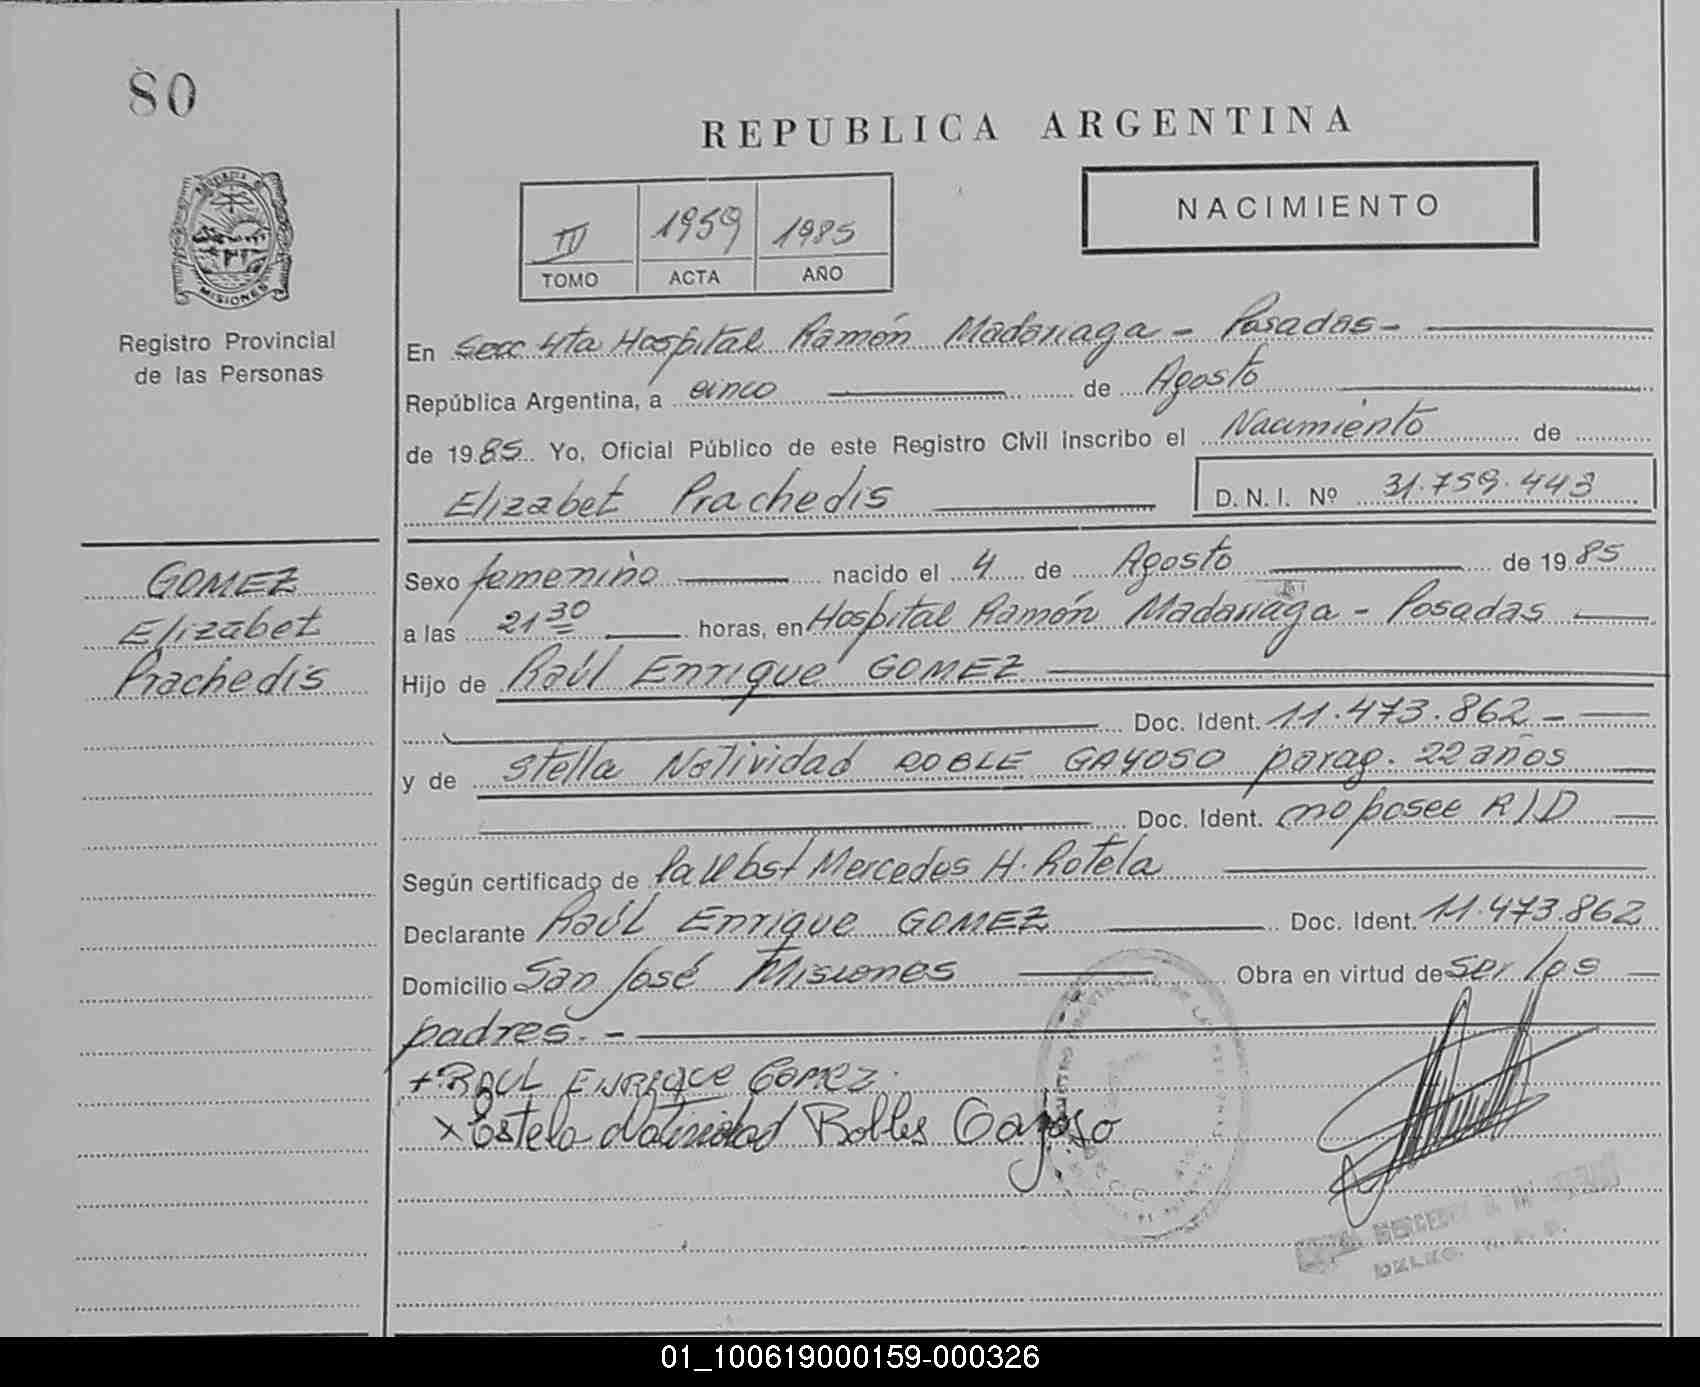 80
REPUBLICA ARGENTINA
NACIMIENTO
IV 1959 1985
TOMO ACTA AÑO
MISIONES
Registro Provincial
de las Personas
En Secc 4ta Hospital Ramón Madariaga - Posadas -
República Argentina, a cinco de Agosto
de 1985 Yo, Oficial Público de este Registro Civil inscribo el Nacimiento de
Elizabet Prachedis D. N. I. Nº 31.759.443
GOMEZ
Elizabet
Prachedis
Sexo femenino nacido el 4 de Agosto de 1985
a las 21 30 horas, en Hospital Ramón Madariaga - Posadas
Hijo de Raúl Enrique GOMEZ
Doc. Ident. 11.473.862 -
y de Stella Natividad ROBLE GAYOSO parag. 22 años
Doc. Ident. no posee R/D
Según certificado de la Obst Mercedes H. Rotela
Declarante Raúl Enrique GOMEZ Doc. Ident. 11.473.862
Domicilio San José Misiones Obra en virtud de ser los
padres. -
+ RAUL ENRIQUE GOMEZ.
x Estela Natividad Robles Gayoso
01_100619000159-000326